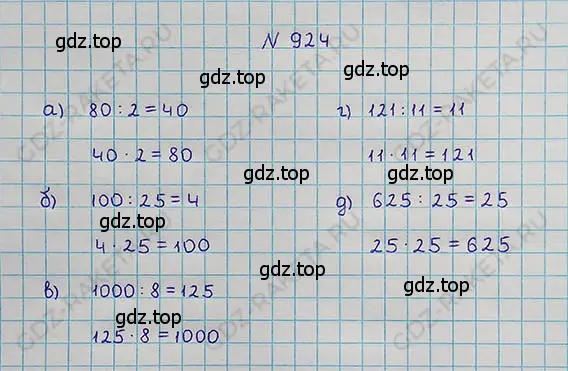 N 924
а) 80 : 2 = 40
40 · 2 = 80
б) 100 : 25 = 4
4 · 25 = 100
в) 1000 : 8 = 125
125 · 8 = 1000
г) 121 : 11 = 11
11 · 11 = 121
д) 625 : 25 = 25
25 · 25 = 625
gdz.top
gdz.top
gdz.top
gdz.top
gdz.top
gdz.top
gdz.top
gdz.top
gdz.top
GDZ-RAKETA.RU
GDZ-RAKETA.RU
GDZ-RAKETA.RU
GDZ-RAKETA.RU
GDZ-RAKETA.RU
GDZ-RAKETA.RU